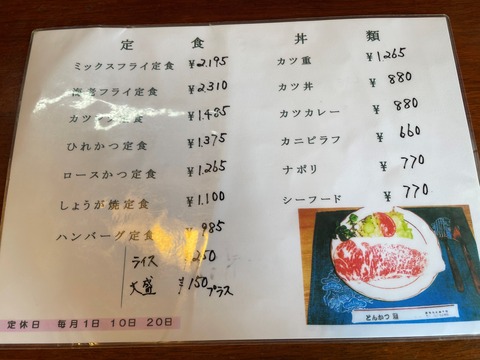 定食
ミックスフライ定食 ¥2.195
海老フライ定食 ¥2310
カツ定食 ¥1.485
ひれかつ定食 ¥1.375
ロースかつ定食 ¥1.265
しょうが焼定食 ¥1.100
ハンバーグ定食 ¥985
ライス ¥250
大盛 ¥150プラス
丼類
カツ重 ¥1265
カツ丼 ¥880
カツカレー ¥880
カニピラフ ¥660
ナポリ ¥770
シーフード ¥770
とんかつ
定休日 毎月1日 10日 20日